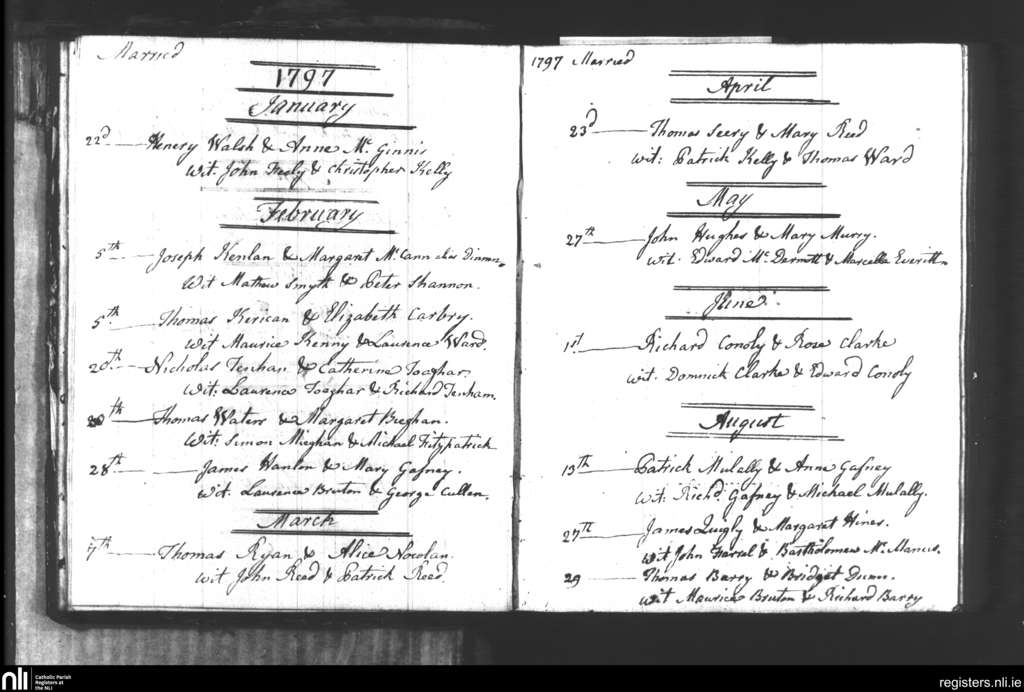 Married
1797
January
22d Henery Walsh & Anne Mc Ginnis
Wit: John Feely & Christopher Kelly
February
5th Joseph Kenlan & Margaret Mc Cann alias
Wit Mathew Smyth & Peter Shannon.
5th Thomas Kerican & Elizabeth Carbry.
Wit Maurice Kenny & Laurence Ward.
20th Nicholas Tenhan & Catherine
Wit: Laurence & Richard Tenham.
20th Thomas Waters & Margaret
Wit: Simon Mieghan & Michael Fitzpatrick
28th James Hanlon & Mary Gafney.
Wit. Laurence Bruton & George Cullen.
March
7th Thomas Ryan & Alice Nowlan.
Wit John Reed & Patrick Reed.
1797 Married
April
23d Thomas Seery & Mary Reed
Wit: Patrick Kelly & Thomas Ward
May
27th John Hughes & Mary Murry.
Wit. Edward Mc Dermott & Marcella Everitt
June
1st Richard Conoly & Rose Clarke
Wit. Domnick Clarke & Edward Conoly
August
13th Patrick Mulally & Anne Gafney
Wit. Richd. Gafney & Michael Mulally.
27th James Quigly & Margaret Hines.
Wit John Farrel & Bartholomew Mc Manus.
29 Thomas Barry & Bridget Dunn.
Wit Maurice Bruton & Richard Barry
nli Catholic Parish
Registers at
the NLI
registers.nli.ie